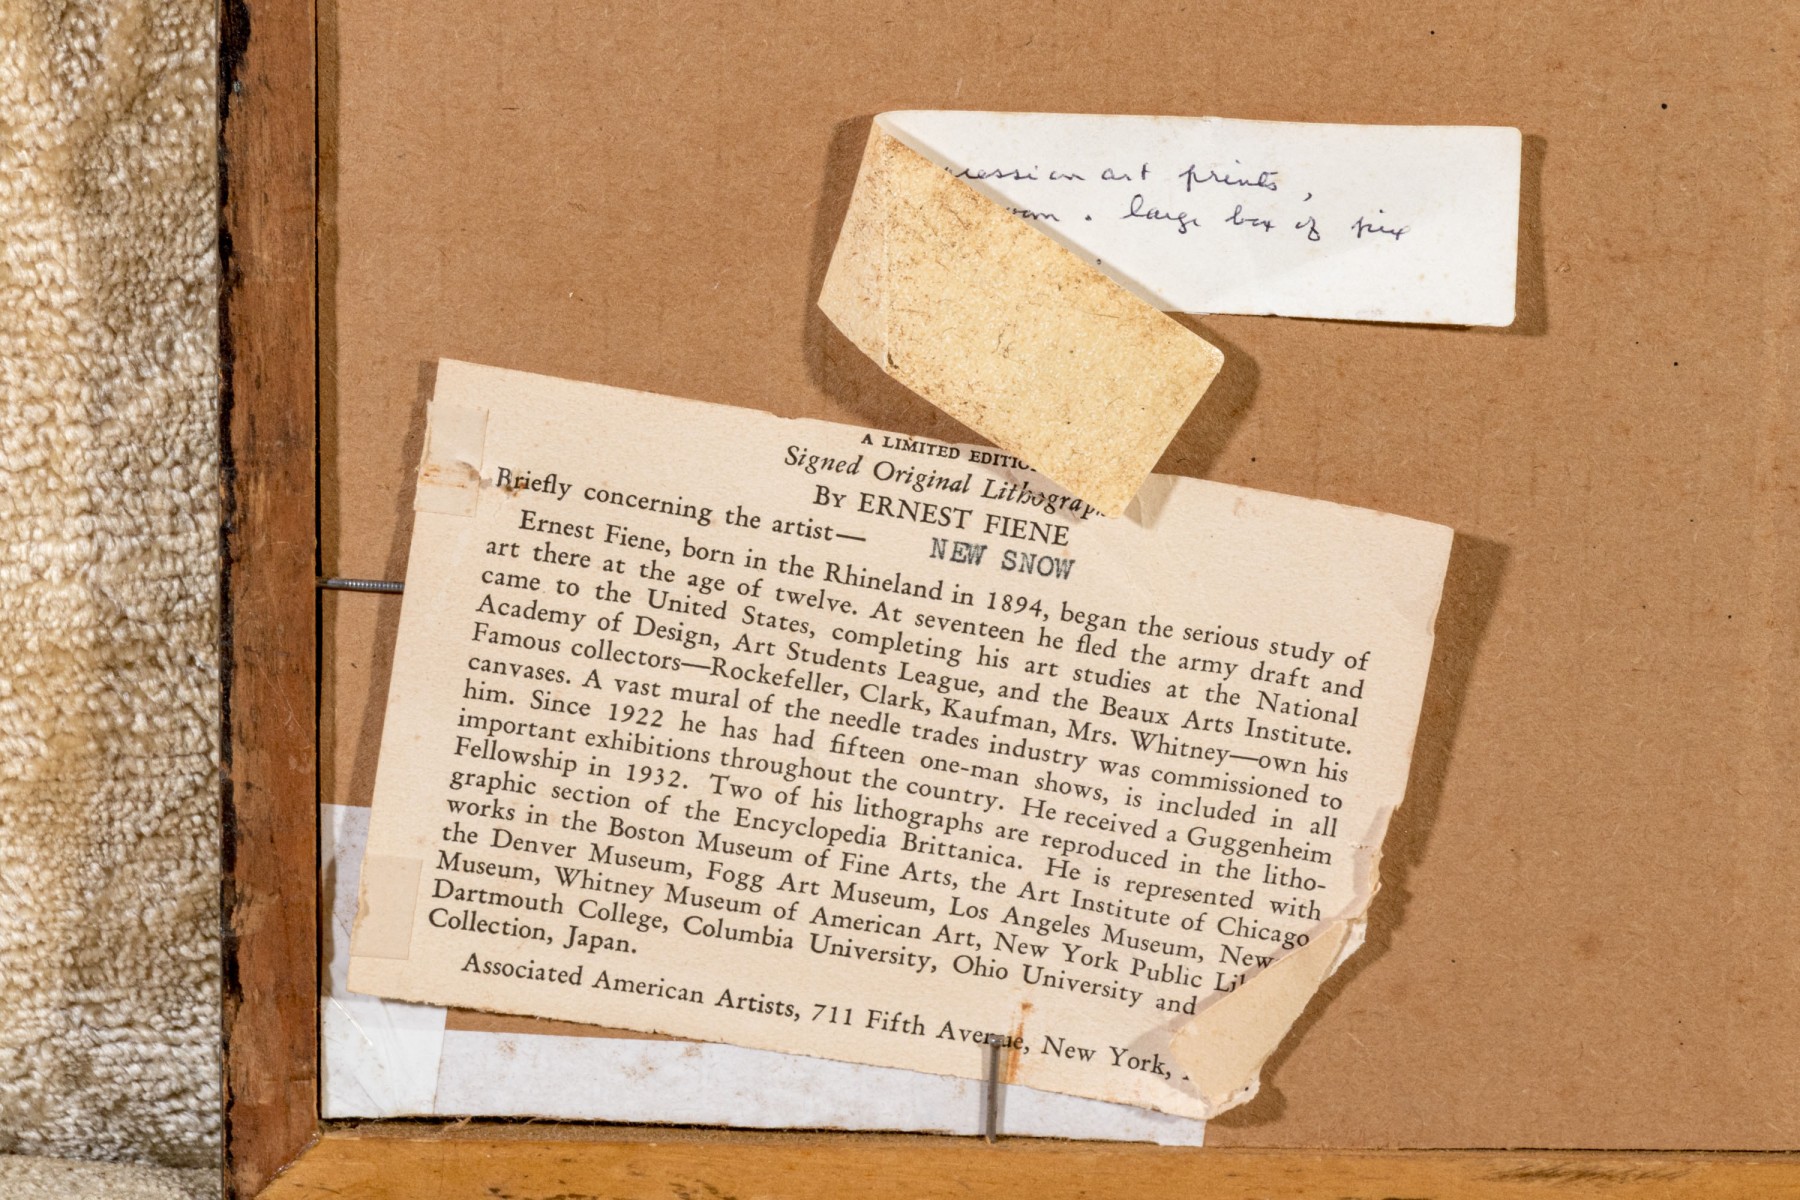 art prints,
. large box of pix
A LIMITED EDITIO
Signed Original Lithograph
BY ERNEST FIENE
NEW SNOW
Briefly concerning the artist—
Ernest Fiene, born in the Rhineland in 1894, began the serious study of
art there at the age of twelve. At seventeen he fled the army draft and
came to the United States, completing his art studies at the National
Academy of Design, Art Students League, and the Beaux Arts Institute.
Famous collectors—Rockefeller, Clark, Kaufman, Mrs. Whitney—own his
canvases. A vast mural of the needle trades industry was commissioned to
him. Since 1922 he has had fifteen one-man shows, is included in all
important exhibitions throughout the country. He received a Guggenheim
Fellowship in 1932. Two of his lithographs are reproduced in the litho-
graphic section of the Encyclopedia Brittanica. He is represented with
works in the Boston Museum of Fine Arts, the Art Institute of Chicago
the Denver Museum, Fogg Art Museum, Los Angeles Museum, New
Museum, Whitney Museum of American Art, New York Public Li
Dartmouth College, Columbia University, Ohio University and
Collection, Japan.
Associated American Artists, 711 Fifth Avenue, New York,